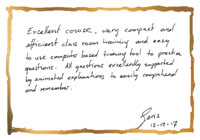 Excellent course, very compact and
efficient class room training and easy
to use computer based training tool to practice
questions. All questions excellently supported
by animated explanations to easily comprehend
and remember.
Boris
12-12-17